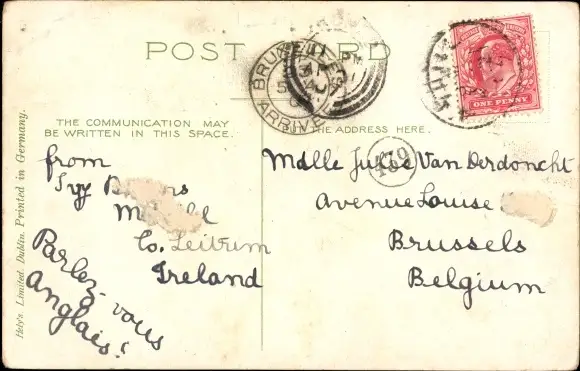 POST CARD
BRUXELLES
ARRIVÉE
ONE PENNY
THE COMMUNICATION MAY
BE WRITTEN IN THIS SPACE.
THE ADDRESS HERE.
from
Ivy
Co. Leitrim
Ireland
Parlez-vous
anglais?
Mdlle Julie Van Derdoncht
Avenue Louise
Brussels
Belgium
Hely's Limited. Dublin. Printed in Germany.